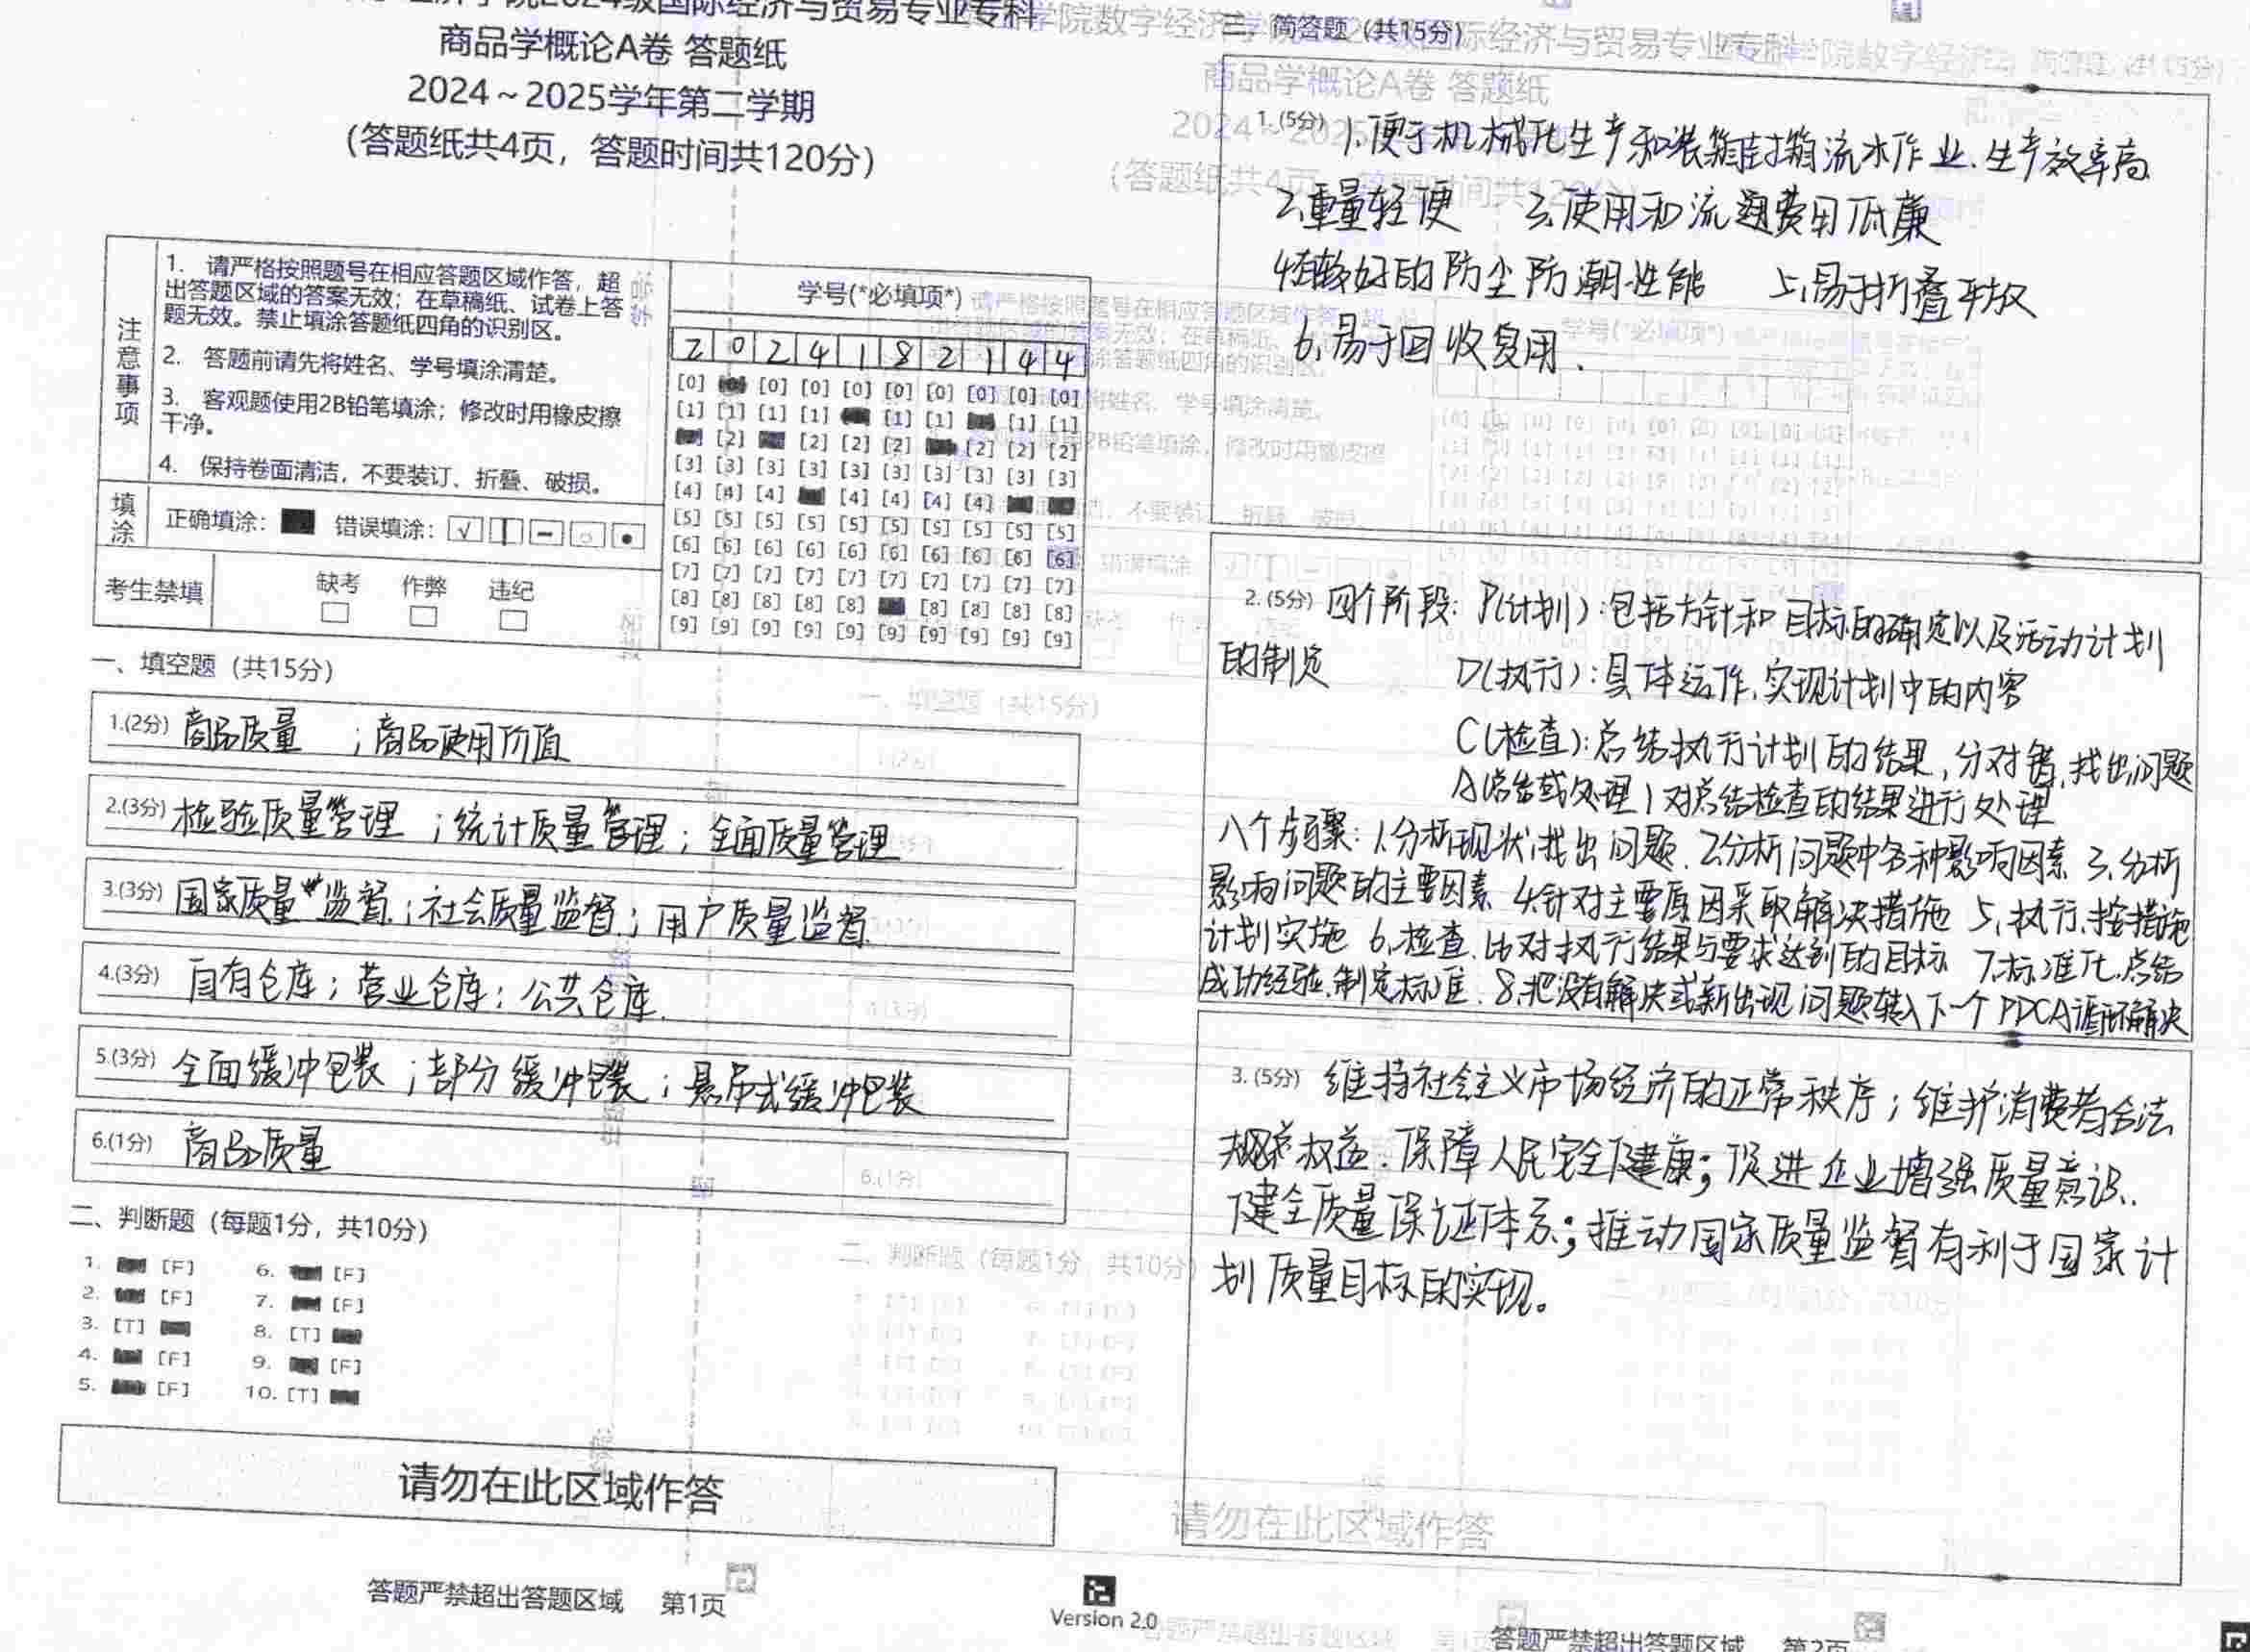 学院2024级国际经济与贸易专业专科
商品学概论A卷 答题纸
2024～2025学年第二学期
（答题纸共4页，答题时间共120分）
注意事项
1. 请严格按照题号在相应答题区域作答，超
出答题区域的答案无效；在草稿纸、试卷上答
题无效。禁止填涂答题纸四角的识别区。
2. 答题前请先将姓名、学号填涂清楚。
3. 客观题使用2B铅笔填涂；修改时用橡皮擦
干净。
4. 保持卷面清洁，不要装订、折叠、破损。
填涂 正确填涂： 错误填涂：
考生禁填 缺考 作弊 违纪
学号(*必填项*)
2 0 2 4 1 8 2 1 4 4
[0] [0] [0] [0] [0] [0] [0] [0] [0]
[1] [1] [1] [1] [1] [1] [1] [1]
[2] [2] [2] [2] [2] [2] [2]
[3] [3] [3] [3] [3] [3] [3] [3] [3] [3]
[4] [4] [4] [4] [4] [4] [4]
[5] [5] [5] [5] [5] [5] [5] [5] [5] [5]
[6] [6] [6] [6] [6] [6] [6] [6] [6] [6]
[7] [7] [7] [7] [7] [7] [7] [7] [7] [7]
[8] [8] [8] [8] [8] [8] [8] [8] [8]
[9] [9] [9] [9] [9] [9] [9] [9] [9] [9]
一、填空题（共15分）
1.(2分) 商品质量 ；商品使用价值
2.(3分) 检验质量管理 ；统计质量管理；全面质量管理
3.(3分) 国家质量监督；社会质量监督；用户质量监督
4.(3分) 自有仓库；营业仓库；公共仓库.
5.(3分) 全面缓冲包装；部分缓冲包装；悬吊式缓冲包装
6.(1分) 商品质量
二、判断题（每题1分，共10分）
1. [F] 6. [F]
2. [F] 7. [F]
3. [T] 8. [T]
4. [F] 9. [F]
5. [F] 10. [T]
请勿在此区域作答
答题严禁超出答题区域 第1页
Version 2.0
三、简答题（共15分）
1.(5分) 1.便于机械化生产和装箱封箱流水作业.生产效率高.
2.重量轻便 3.使用和流通费用低廉
4.有较好的防尘防潮性能 5.易于折叠平放
6.易于回收复用.
2.(5分) 四个阶段：P(计划)：包括方针和目标的确定以及活动计划
的制定 D(执行)：具体运作,实现计划中的内容
C(检查)：总结执行计划的结果,分对错,找出问题
A(总结或处理)对总结检查的结果进行处理
八个步骤：1.分析现状,找出问题. 2.分析问题中各种影响因素 3.分析
影响问题的主要因素 4.针对主要原因采取解决措施 5.执行.按措施
计划实施 6.检查.比对执行结果与要求达到的目标 7.标准化.总结
成功经验.制定标准. 8.把没有解决或新出现问题转入下一个PDCA循环解决
3.(5分) 维持社会主义市场经济的正常秩序；维护消费者合法
权益.保障人民安全健康；促进企业增强质量意识.
健全质量保证体系；推动国家质量监督有利于国家计
划质量目标的实现。
请勿在此区域作答
答题严禁超出答题区域 第2页